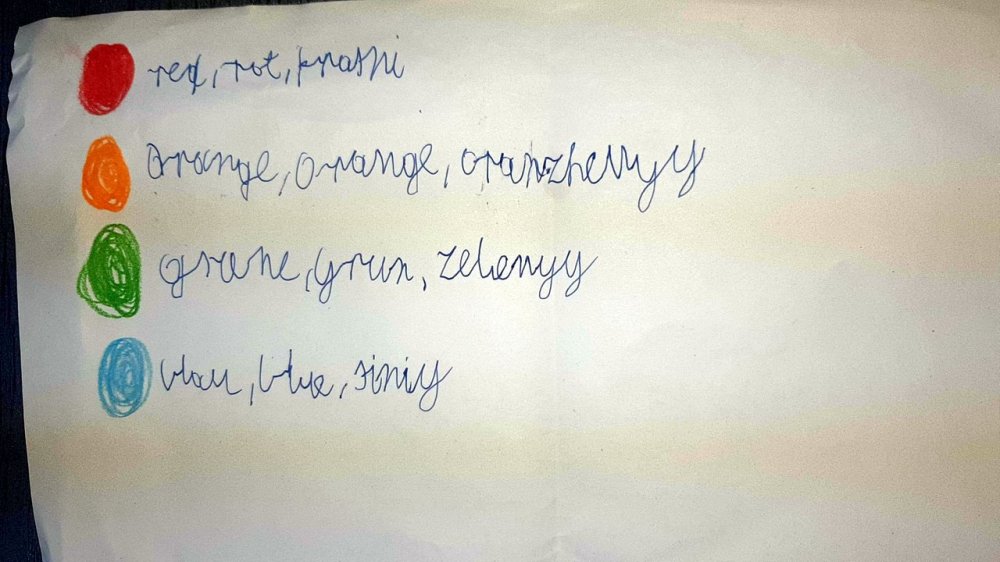 red, rot, krasni
Orange, Orange, oranzhevyy
grene, grun, zelenyy
blau, blue, siniy